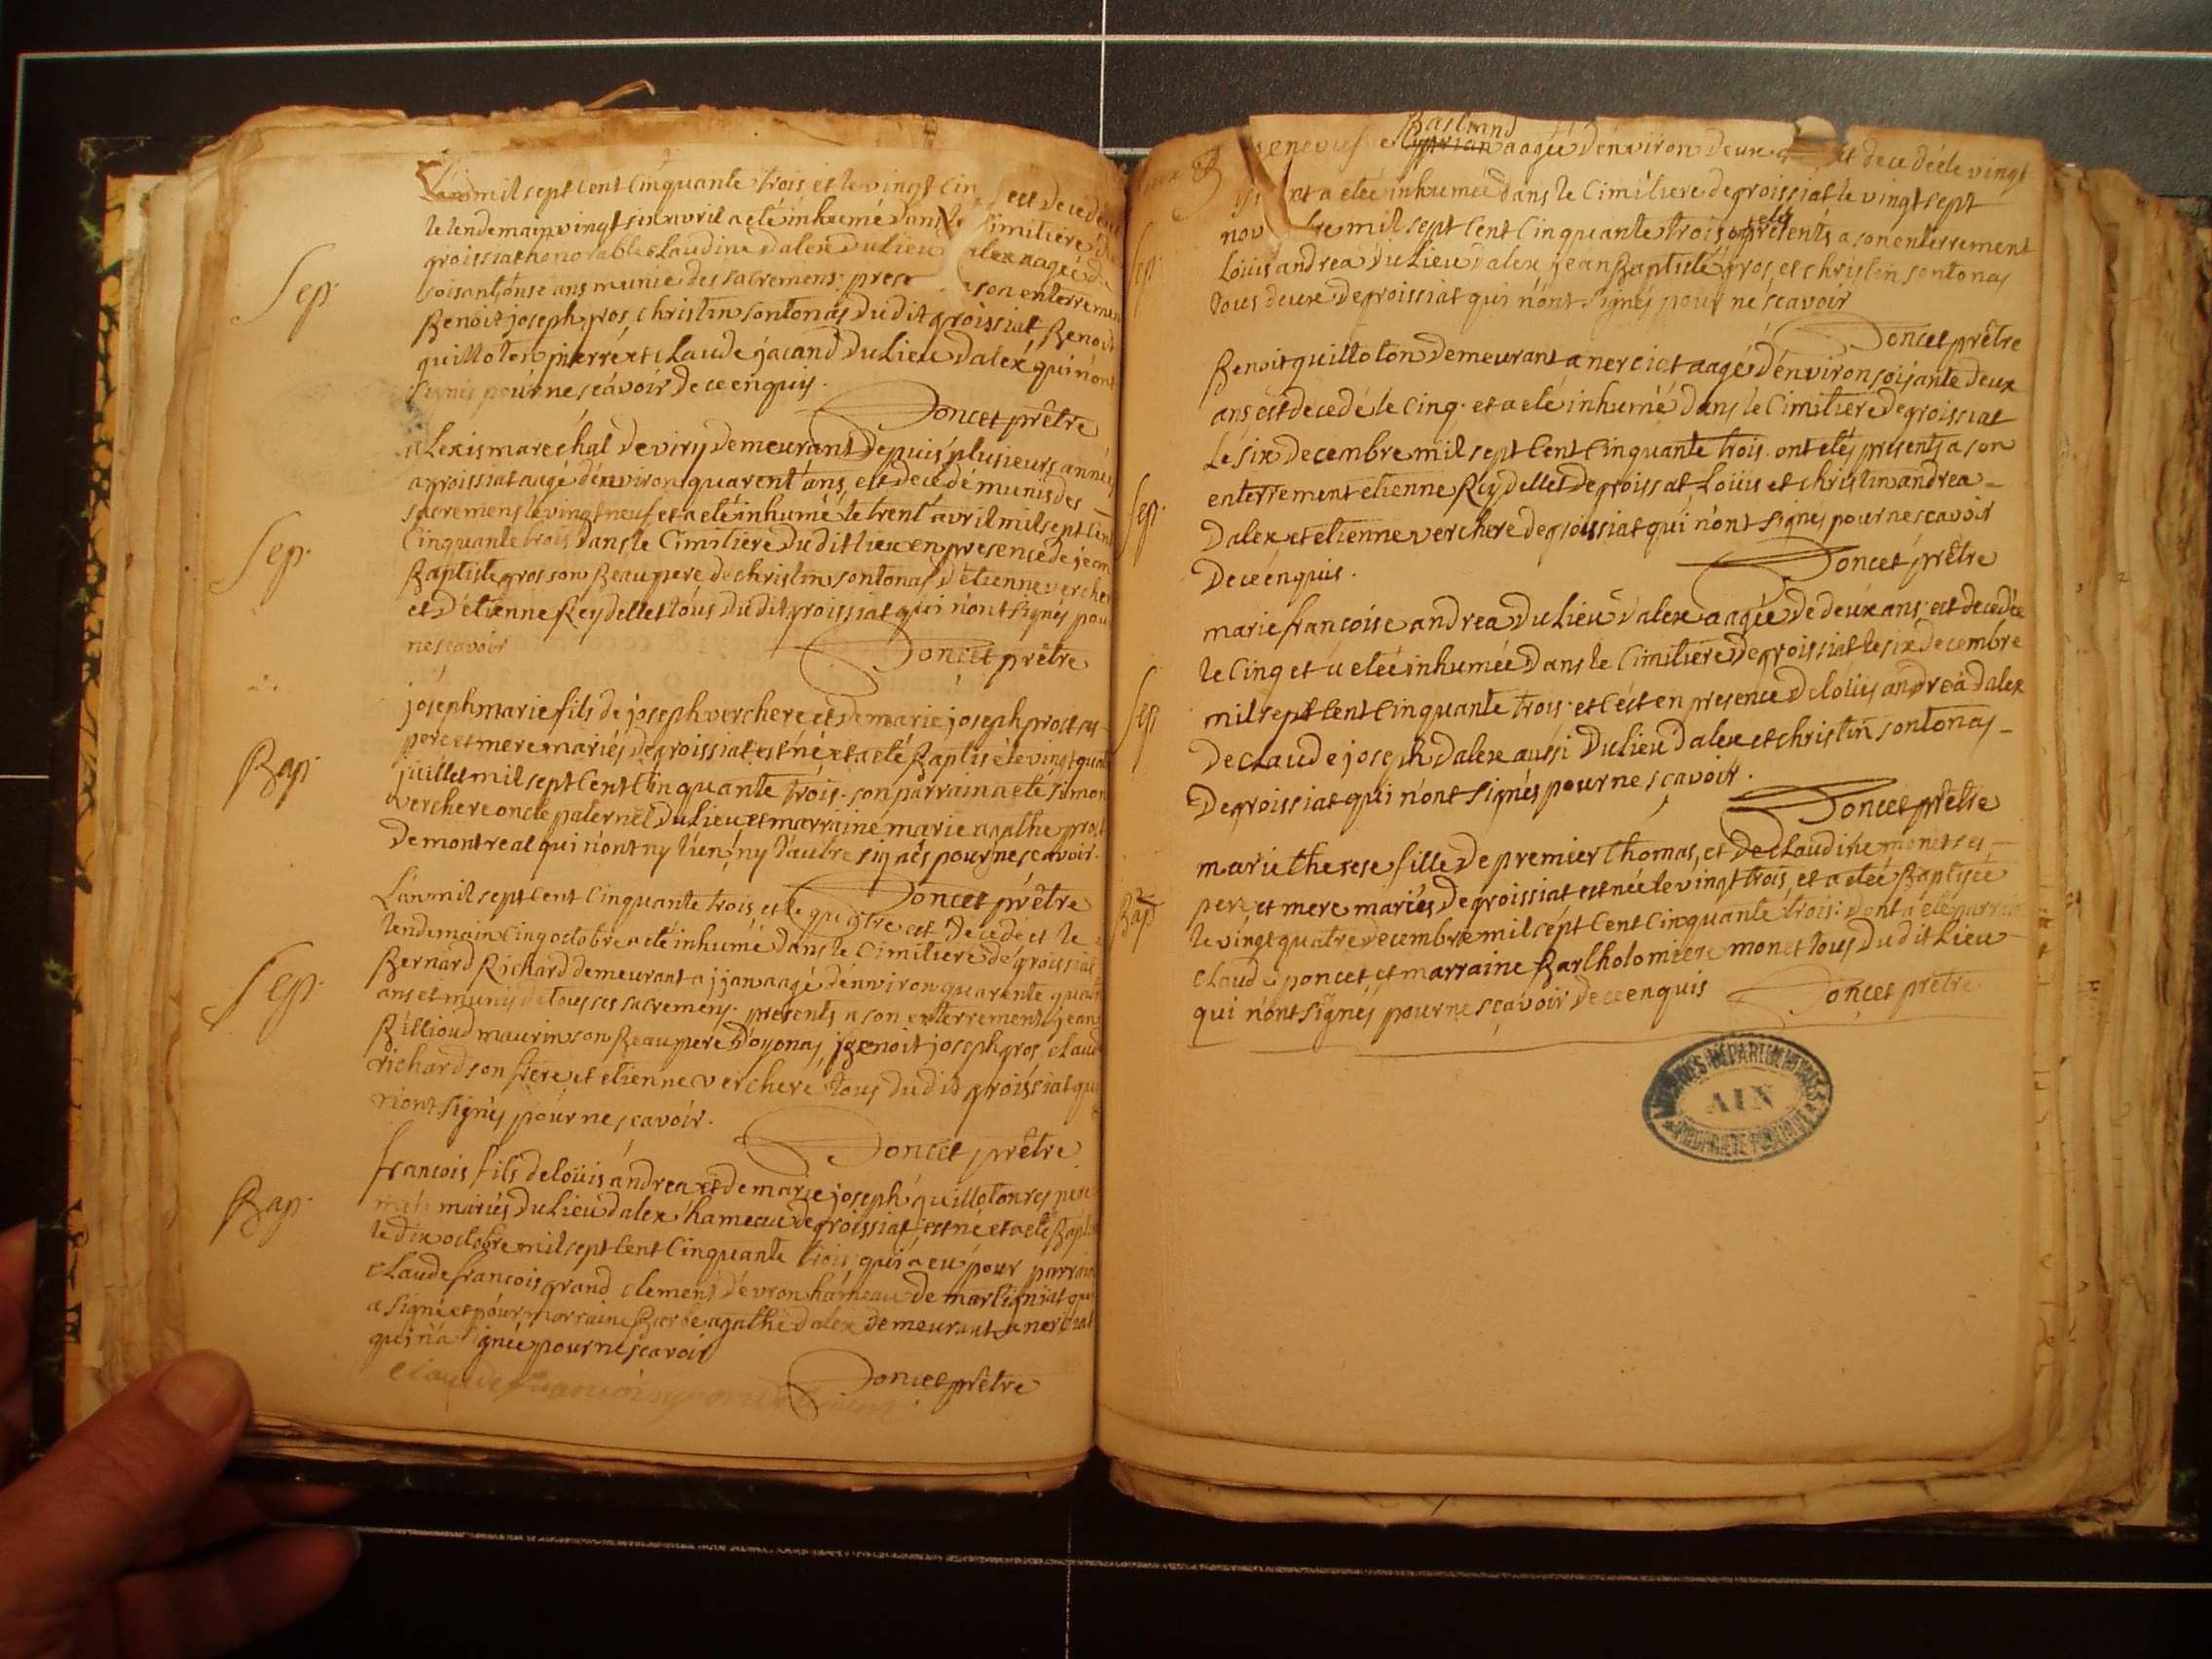 L'an mil sept cent cinquante trois et le vingt cin est decedé
le lendemain vingt six avril a eté inhumé dans le Cimitiere de
groissiat honorable Claudine dalex du lieu dalex aageé de
soisantonse ans munie des sacremens: prese a son enterremen
Sep.
Benoit joseph gros, christin sontonas dudit groissiat Benoit
guilloton pierre et claude jacand du lieu dalex qui n'ont
signés pour ne scavoir de ce enquis.
Poncet prêtre
alexis marechal de viry demeurant depuis plusieurs année
a groissiat aagé d'environ quarent ans, est decedé munis des
sacremens le vingt neuf et a eté inhumé le trent avril mil sept cent
Sep.
Cinquante trois dans le Cimitiere dudit lieu en presence de jean
Baptiste gros son Beaupere de christin sontonas d'etienne verchere
et d'etienne Reydellet tous dudit groissiat qui n'ont signés pou
ne scavoir
Poncet prêtre
joseph marie fils de joseph verchere et de marie joseph prost ses
pere et mere mariés de groissiat est né et a eté Baptisé le vingt quat
Bap.
juillet mil sept Cent Cinquante trois. son parrain a eté simon
verchere oncle paternel du lieu et marraine marie agathe prost
de montreal qui n'ont ny l'un, ny l'autre signés pour ne scavoir.
Poncet prêtre
L'an mil sept cent Cinquante trois, et le quatre est decedé et le
lendemain cinq octobre a eté inhumé dans le Cimitiere de groissiat
Bernard Richard demeurant a ijan aagé d'environ quarente quatr
Sep.
ans et munis de tous ses sacremens. presents a son enterrement jean
Billioud maurin son Beaupere d'oyonas, Benoit joseph gros, claud
richard son frere et etienne verchere tous dudit groissiat qui
n'ont signés pour ne scavoir.
Poncet prêtre
francois fils de loüis andrea et de marie joseph guilloton ses pere
mere mariés du lieu dalex hameau de groissiat, est né et a eté Baptis
Bap.
le dix octobre mil sept Cent Cinquante trois, qui a eu pour parrain
claude francois grand clement d'evron hameau de martigniat qui
a signé et pour marraine Barbe agathe dalex demeurant a nerciat
qui n'a signée pour ne scavoir
Poncet prêtre
claude francois grand clement
Bastand
genevuf e cyprian aageé d'environ deux est decedée le vingt
six et a eteé inhumée dans le Cimitiere de groissiat le vingt sept
etés
nov re mil sept Cent Cinquante trois ont presents a son enterrement
Sep.
Loüis andrea du lieu dalex jean Baptiste gros, et christin sontonas
tous deux de groissiat qui n'ont signés pour ne scavoir
Poncet prêtre
Benoit guilloton demeurant a nerciat aagé d'environ soisante deux
ans est decedé le cinq. et a eté inhumé dans le Cimitiere de groissiat
Le six decembre mil sept Cent Cinquante trois. ont etés presents a son
enterrement etienne Reydellet de groissat, Loüis et christin andrea
Sep.
dalex et etienne verchere de groissiat qui n'ont signés pour ne scavoir
de ce enquis.
Poncet prêtre
marie francoise andrea du lieu dalex aagée de deux ans, est decedée
le Cinq et a eteé inhumée dans le Cimitiere de groissiat le six decembre
Sep
mil sept Cent Cinquante trois. et c'est en presence de loüis andrea dalex
de claude joseph dalex aussi du lieu dalex et christin sontonas
de groissiat qui n'ont signés pour ne scavoir.
Poncet prêtre
marie therese fille de premier thomas, et de claudine monet ses
pere, et mere mariés de groissiat est née le vingt trois, et a eteé Baptisée
Bap
le vingt quatre decembre mil sept Cent Cinquante trois: dont a eté parrain
claude poncet, et marraine Bartholomiere monet tous dudit lieu
qui n'ont signés pour ne scavoir de ce enquis
Poncet prêtre
ARCHIVES DEPARTEMENTALES
AIN